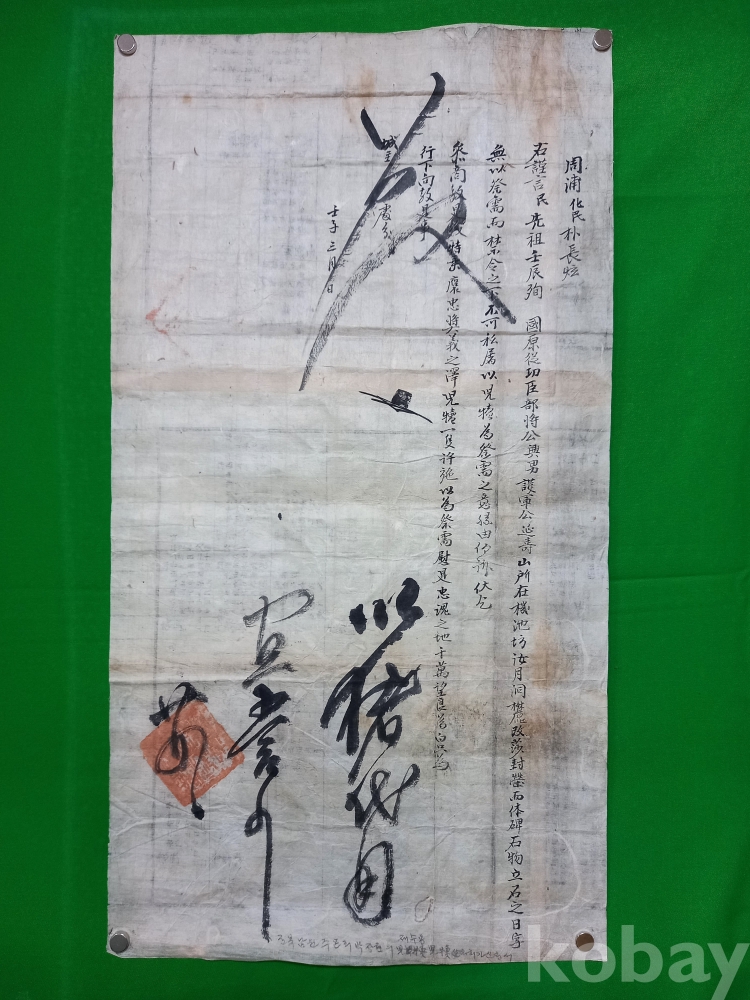 周浦 化民 朴長炫
右謹言民 先祖壬辰殉 國原從功臣部將公興男 護軍公延壽 山所在機池坊汝月洞 改莎封塋而体碑石物立石之日字
無以祭需而禁令之下不可私屠以児犢為祭需之意緣由仰訴 伏乞
參商教是後 特垂 褒忠將義之澤児犢一隻許施以為祭需慰是忠魂之地千萬望良為白只爲
行下向教是事
城主 處分
壬子 三月 日
以猪代用
宜當
kobay